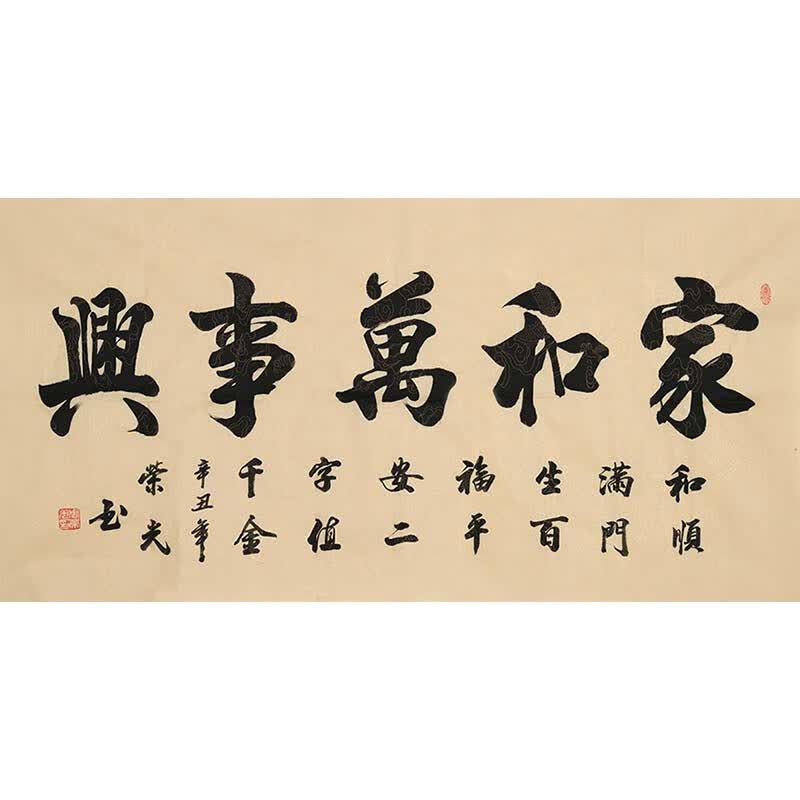 家和萬事興
和順
滿門
生百
福平
安二
字值
千金
辛丑年
榮光
书